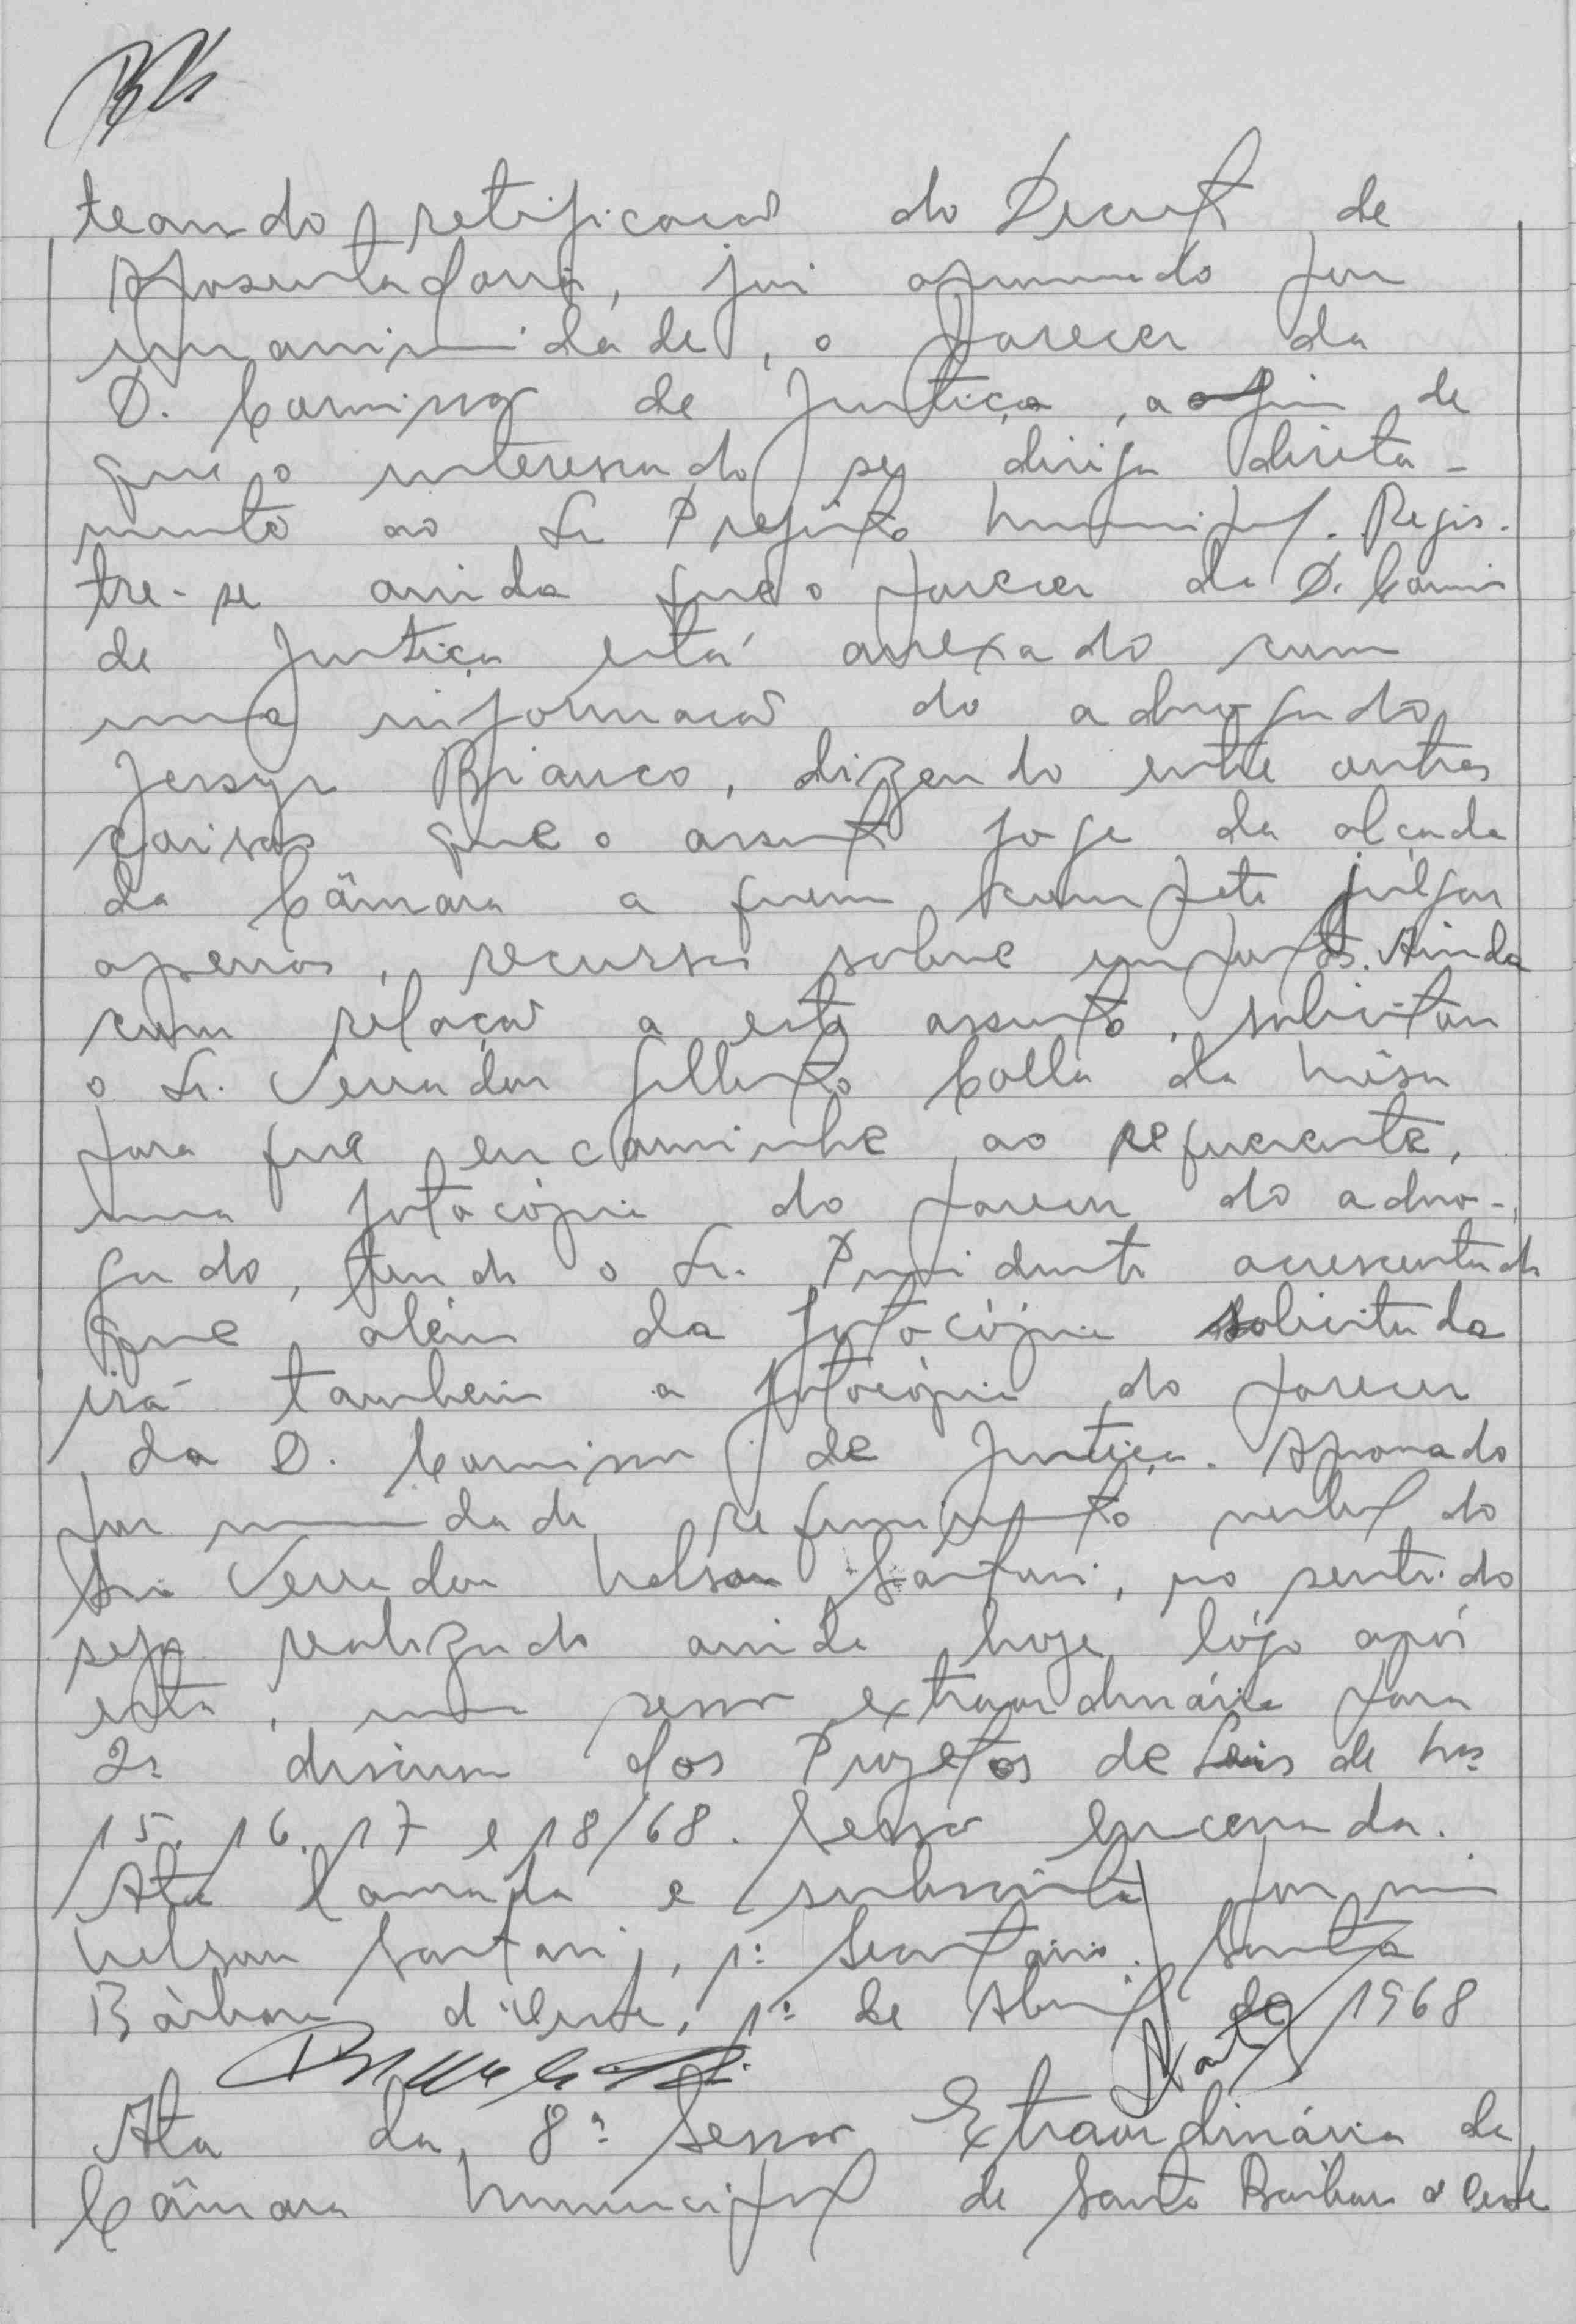 teando retificação do Decreto de
Aposentadoria, foi aprovado por
unanimidade, o parecer da
D. Comissão de Justiça, a fim de
que o interessado se dirija direta-
mente ao Sr. Prefeito Municipal. Regis-
tre-se ainda que o parecer da D. Comis
de Justiça está anexado com
uma informação do advogado
Jersyr Bianco, dizendo entre outras
coisas que o assunto foge da alçada
da Câmara a quem compete julgar
apenas, recursos sobre impostos. Ainda
com relação a este assunto, solicitou
o Sr. Vereador Gilberto Colla da Mesa
para que encaminhe ao requerente,
uma fotocópia do parecer do advo-
gado, tendo o Sr. Presidente acrescentado
que além da fotocópia solicitada
irá tambem a fotocópia do parecer
da D. Comissão de Justiça. Aprovado
por unanimidade requerimento verbal do
Sr. Vereador Nelson Sartori, no sentido
seja realizado ainda hoje lógo após
esta, uma sessão extraordinária para
2ª discussão dos Projetos de Leis de nos
15, 16, 17 e 18/68. Sessão encerrada.
Ata lavrada e subscrita por mim
Nelson Sartori, 1º Secretário. Santa
Bárbara d'Oeste, 1º de Abril de 1968
Ata da 8ª Sessão Extraordinária da
Câmara Municipal de Santa Bárbara d'Oeste